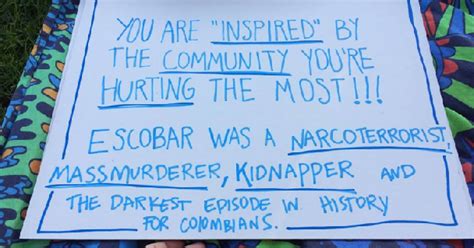 YOU ARE "INSPIRED" BY
THE COMMUNITY YOU'RE
HURTING THE MOST!!!
ESCOBAR WAS A NARCOTERRORIST,
MASSMURDERER, KIDNAPPER AND
THE DARKEST EPISODE IN HISTORY
FOR COLOMBIANS.